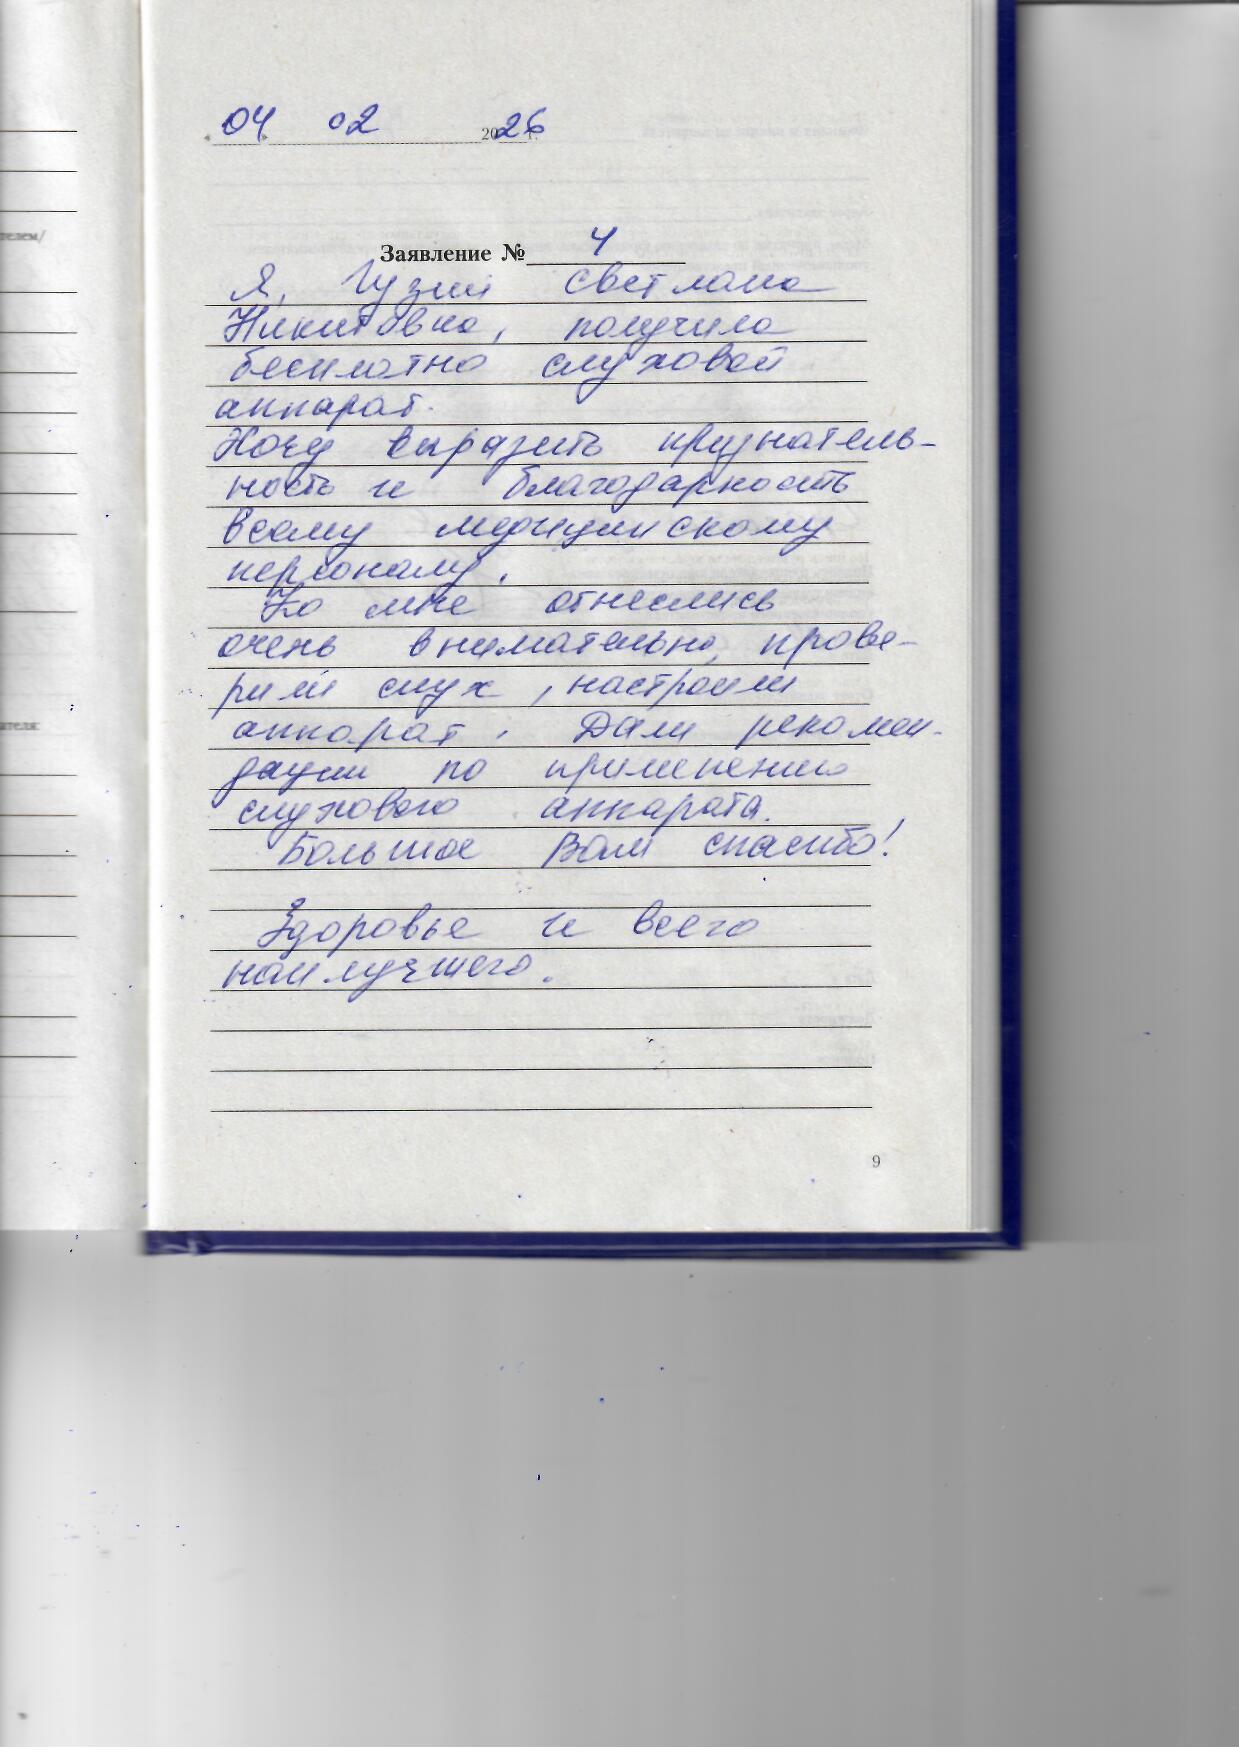 телем/
ателя:
« 04 » 02 2026 г.
Заявление № 4
Я, Гузий Светлана
Никитовна, получила
бесплатно слуховой
аппарат.
Хочу выразить признатель-
ность и благодарность
всему медицинскому
персоналу.
Ко мне отнеслись
очень внимательно, прове-
рили слух, настроили
аппарат. Дали рекомен-
дации по применению
слухового аппарата.
Большое Вам спасибо!
Здоровье и всего
наилучшего.
9